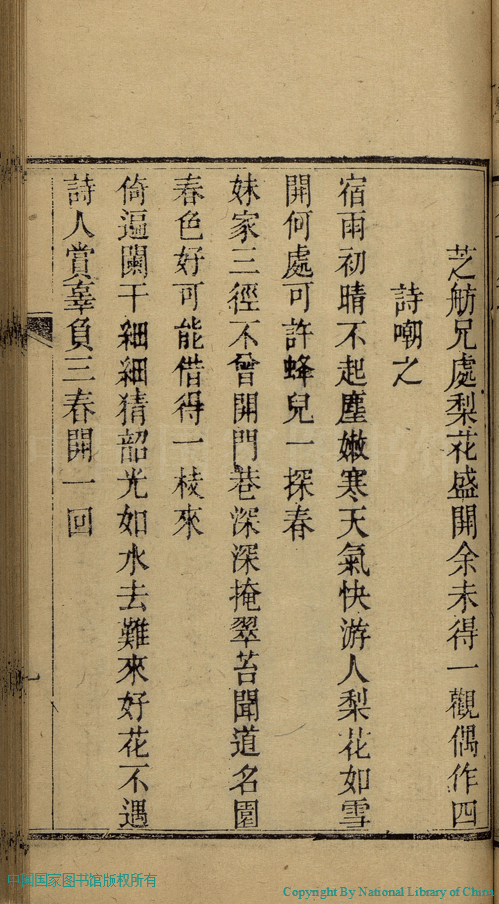 芝舫兄處梨花盛開余未得一觀偶作四
詩嘲之
宿雨初晴不起塵嫩寒天氣快游人梨花如雪
開何處可許蜂兒一探春
妹家三徑不曾開門巷深深掩翠苔聞道名園
春色好可能借得一枝來
倚遍闌干細細猜韶光如水去難來好花不遇
詩人賞辜負三春開一回
中国国家图书馆版权所有
Copyright By National Library of China